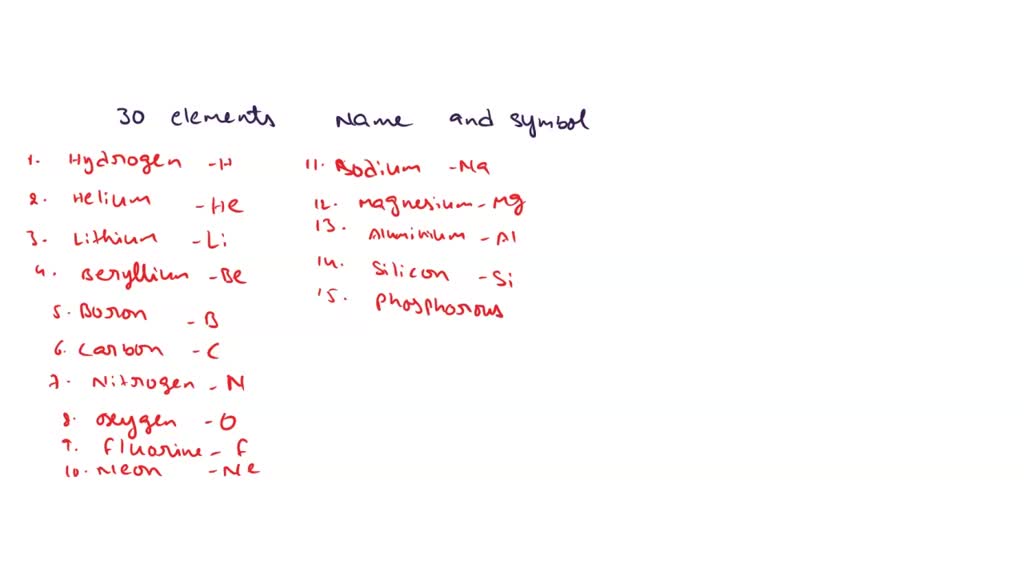 30 elements Name and symbol
1. Hydrogen - H
2. Helium - He
3. Lithium - Li
4. Beryllium - Be
5. Boron - B
6. Carbon - C
7. Nitrogen - N
8. Oxygen - O
9. Fluorine - F
10. Neon - Ne
11. Sodium - Na
12. Magnesium - Mg
13. Aluminium - Al
14. Silicon - Si
15. Phosphorous